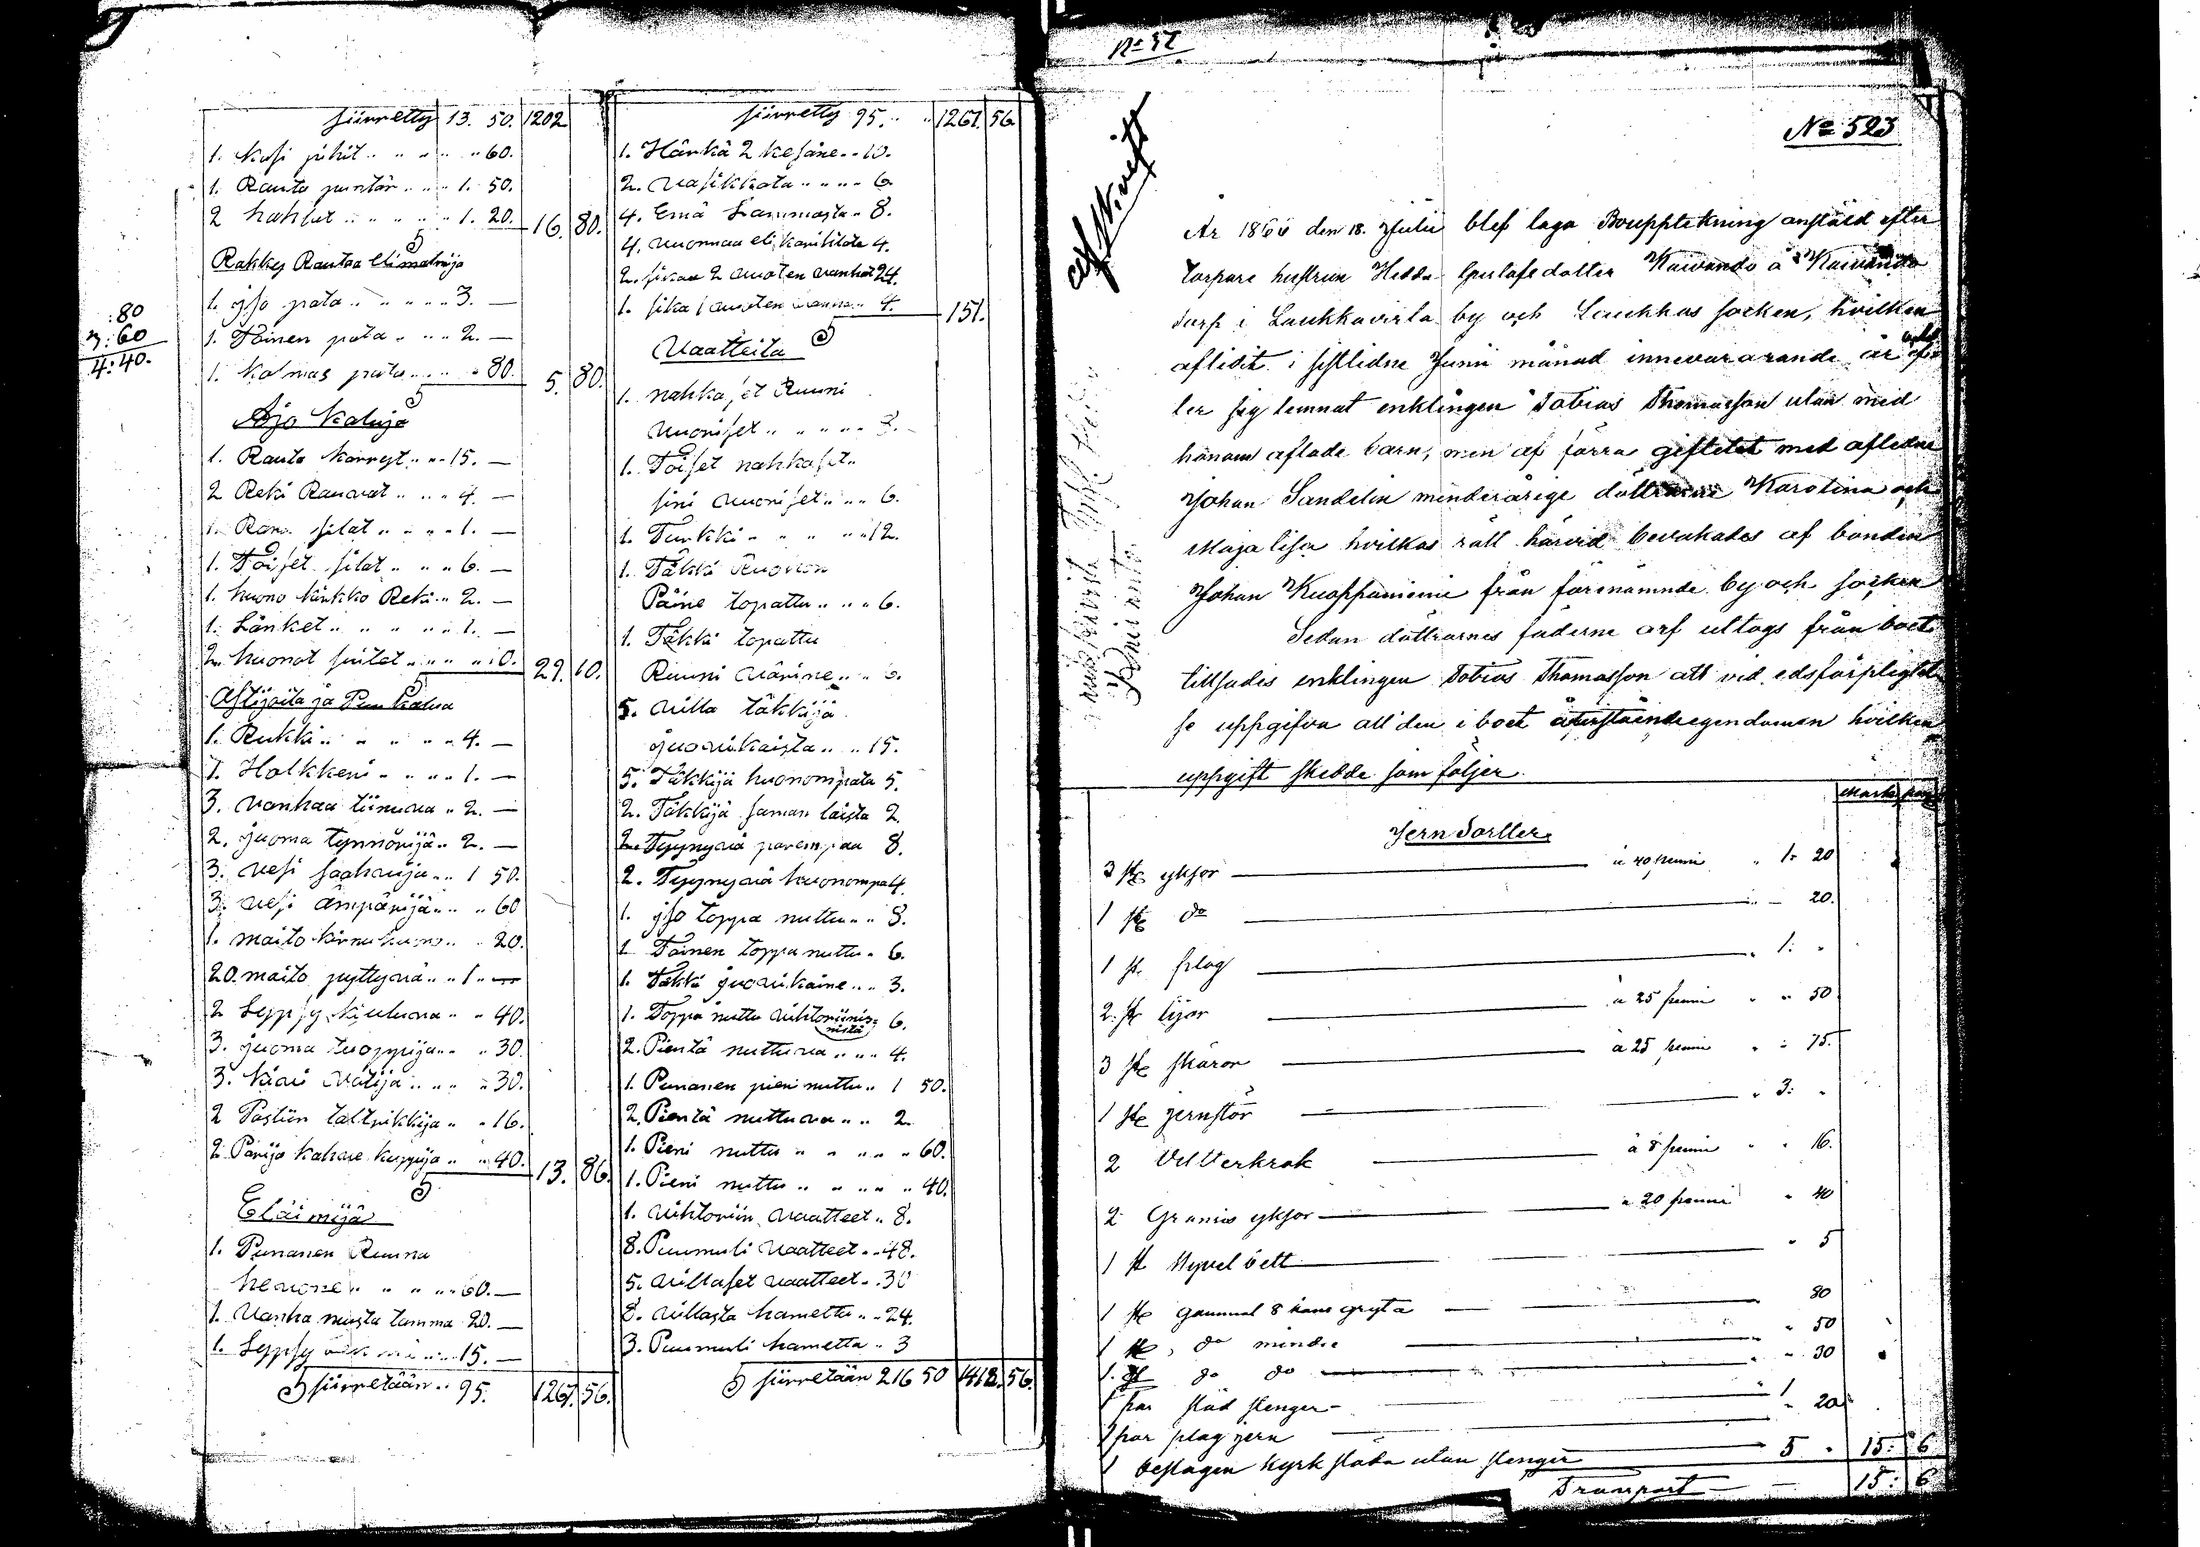 :80
3:60
4:40.
siirretty 13. 50. 1202
1. Kasi pihit „ „ „ „ 60.
1. Rauta puntär „ „ 1. 50.
2 hahlat „ „ „ „ 1. 20. 16. 80.
Rautaa eli malmija
1. jso pata „ „ „ „ 3. —
1. Toinen pata „ „ „ 2. —
1. Kolmas pata „ „ „ 80. 5. 80.
Ajo Kaluja
1. Rauta Kärryt „ „ 15. —
2 Reki Rauvat „ „ „ 4. —
1. silat „ „ „ „ 1. —
1. Toiset silat „ „ „ 6. —
1. huono kirkko Reki „ 2. —
1. Länket „ „ „ „ 1. —
2. huonot suitet „ „ „ 29.
Astijoita ja Puu Kalua
1. Rukki „ „ „ „ 4. —
1. Holkkeri „ „ „ „ 1. —
3. vanhaa tiinuva „ 2. —
2. juoma tynnörijä „ 2. —
3. vesi saahvija „ „ 1 50.
3. vesi ämpärijä „ „ „ 60
1. maito kirnu huono „ „ 20.
20. maito pyttyvä „ „ 1 „ —
2 Seppy kiuluva „ „ 40.
3. juoma tuoppija „ „ 30.
3. Kivi Vatija „ „ „ 30.
2 Posliin taltrikkija „ „ 16.
2 Parija kahve kuppija „ „ 40. 13. 86.
Eläimijä
1. Punanen Ruuna
hevone „ „ „ „ 60. —
1. Vanha musta tamma 20. —
1. 15. —
siirretään „ 95. 1267. 56.
siirretty 95. „ 1267. 56.
1. Härkä 2 kesäne „ 10.
2. Vasikkata „ „ „ 6.
4. Emä Lammasta „ 8.
4. vuonnaa eli karitsata 4.
2. sikaa 2 vuoten vanhat 24.
1. sika 1 vuoten vanha „ 4. 151.
Vaatteita
1. nahkaset Ruuni
vuoriset „ „ „ „ 8.
1. Toiset nahkaset „
sini vuoriset „ „ 6.
1. Turkki „ „ „ „ 12.
1. Täkki Ruovon
Päine topattu „ „ „ 6.
1. Täkki topattu
Ruuni värine „ „
5. villa täkkijä
juovikaista „ „ 15.
5. Täkkijä huonompata 5.
2. Täkkijä saman laista 2.
2. Tyynyviä parempaa 8.
2. Tyynyviä huonompa 4.
1. jso toppa nuttu „ 8.
1 Toinen toppa nuttu „ 6.
1. Täkki juovikaine „ „ 3.
1. Toppa nuttu
nistä 6.
2. Pientä nuttuva „ „ „ 4.
1. Punanen pieni nuttu „ 1 50.
2. Pientä nuttuva „ „ 2
1. Pieni nuttu „ „ „ „ 60.
1. Pieni nuttu „ „ „ „ 40.
1. Vihtoriin Vaatteet „ 8.
8. Puumuli Vaatteet „ 48.
5. villaset vaatteet „ 30
8. villasta hametta „ 24.
3. Puumuli hametta „ 3
siirretään 216 50 1412. 56.
No 52
No 523
År 1866 den 18. Julii blef laga Bouppteckning anstäld efter
torpare hustrun Hedda Gustafsdotter Kaivando å Kaivando
torp i Laukkavirta by och Laukkas socken, hvilken
aflidit i sistlidne Junii månad innevararande år
ter sig lemnat enklingen Tobias Thomasson utan med
hånom aflade barn, men af förra giftetet med aflidne
Johan Sandelin minderårige döttrarne Karolina och
Maja lisa hvilkas rätt härvid bevakades af bonden
Johan Kuoppaniemi från förenämnde by och socken
Sedan döttrarnes fäderne arf uttags från boet
tillsades enklingen Tobias Thomasson att vid edsförpligtel
se uppgifva all den i boet återstående egendomen hvilken
uppgift skedde som följer.
Mark pen
Jern Sortter
3 st yxor — à 40 penni „ 1: 20
1 st do — „ — 20.
1 st. plog — „ 1: „
2. st lijar — à 25 penni „ „ 50
3 st skäror — à 25 penni „ „ 75.
1 st jernstör — „ 3: „
2 Vetterkrok — à 8 penni „ „ 16.
2 Gramia yxor — à 20 penni „ 40
1 st Hyvel bett — „ 5
1 st gammal 8 kans gryta — 80
1 st, do mindre — „ 50
1. st do do — „ 30
1 par släd stenger — „ 1
1 par plog jern — „ 20
1 beslagen kyrk släda utan stenger — 5 „ 15: 6
Transport — 15: 6